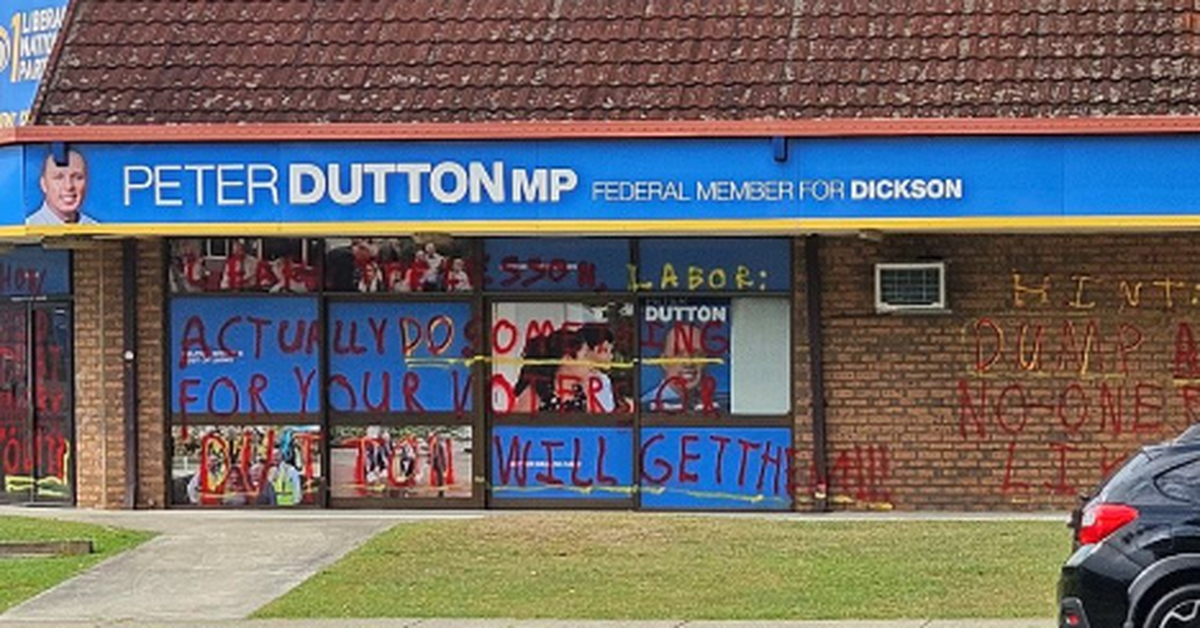 LIBERAL
NATIONAL
PARTY
PETER DUTTON MP FEDERAL MEMBER FOR DICKSON
LEARN THE LESSON, LABOR:
DUTTON
ACTUALLY DO SOMETHING
FOR YOUR VOTERS OR
DUTTON WILL GET THEM!!!!
HOW
HINT
DUMP A
NO-ONE
LIK